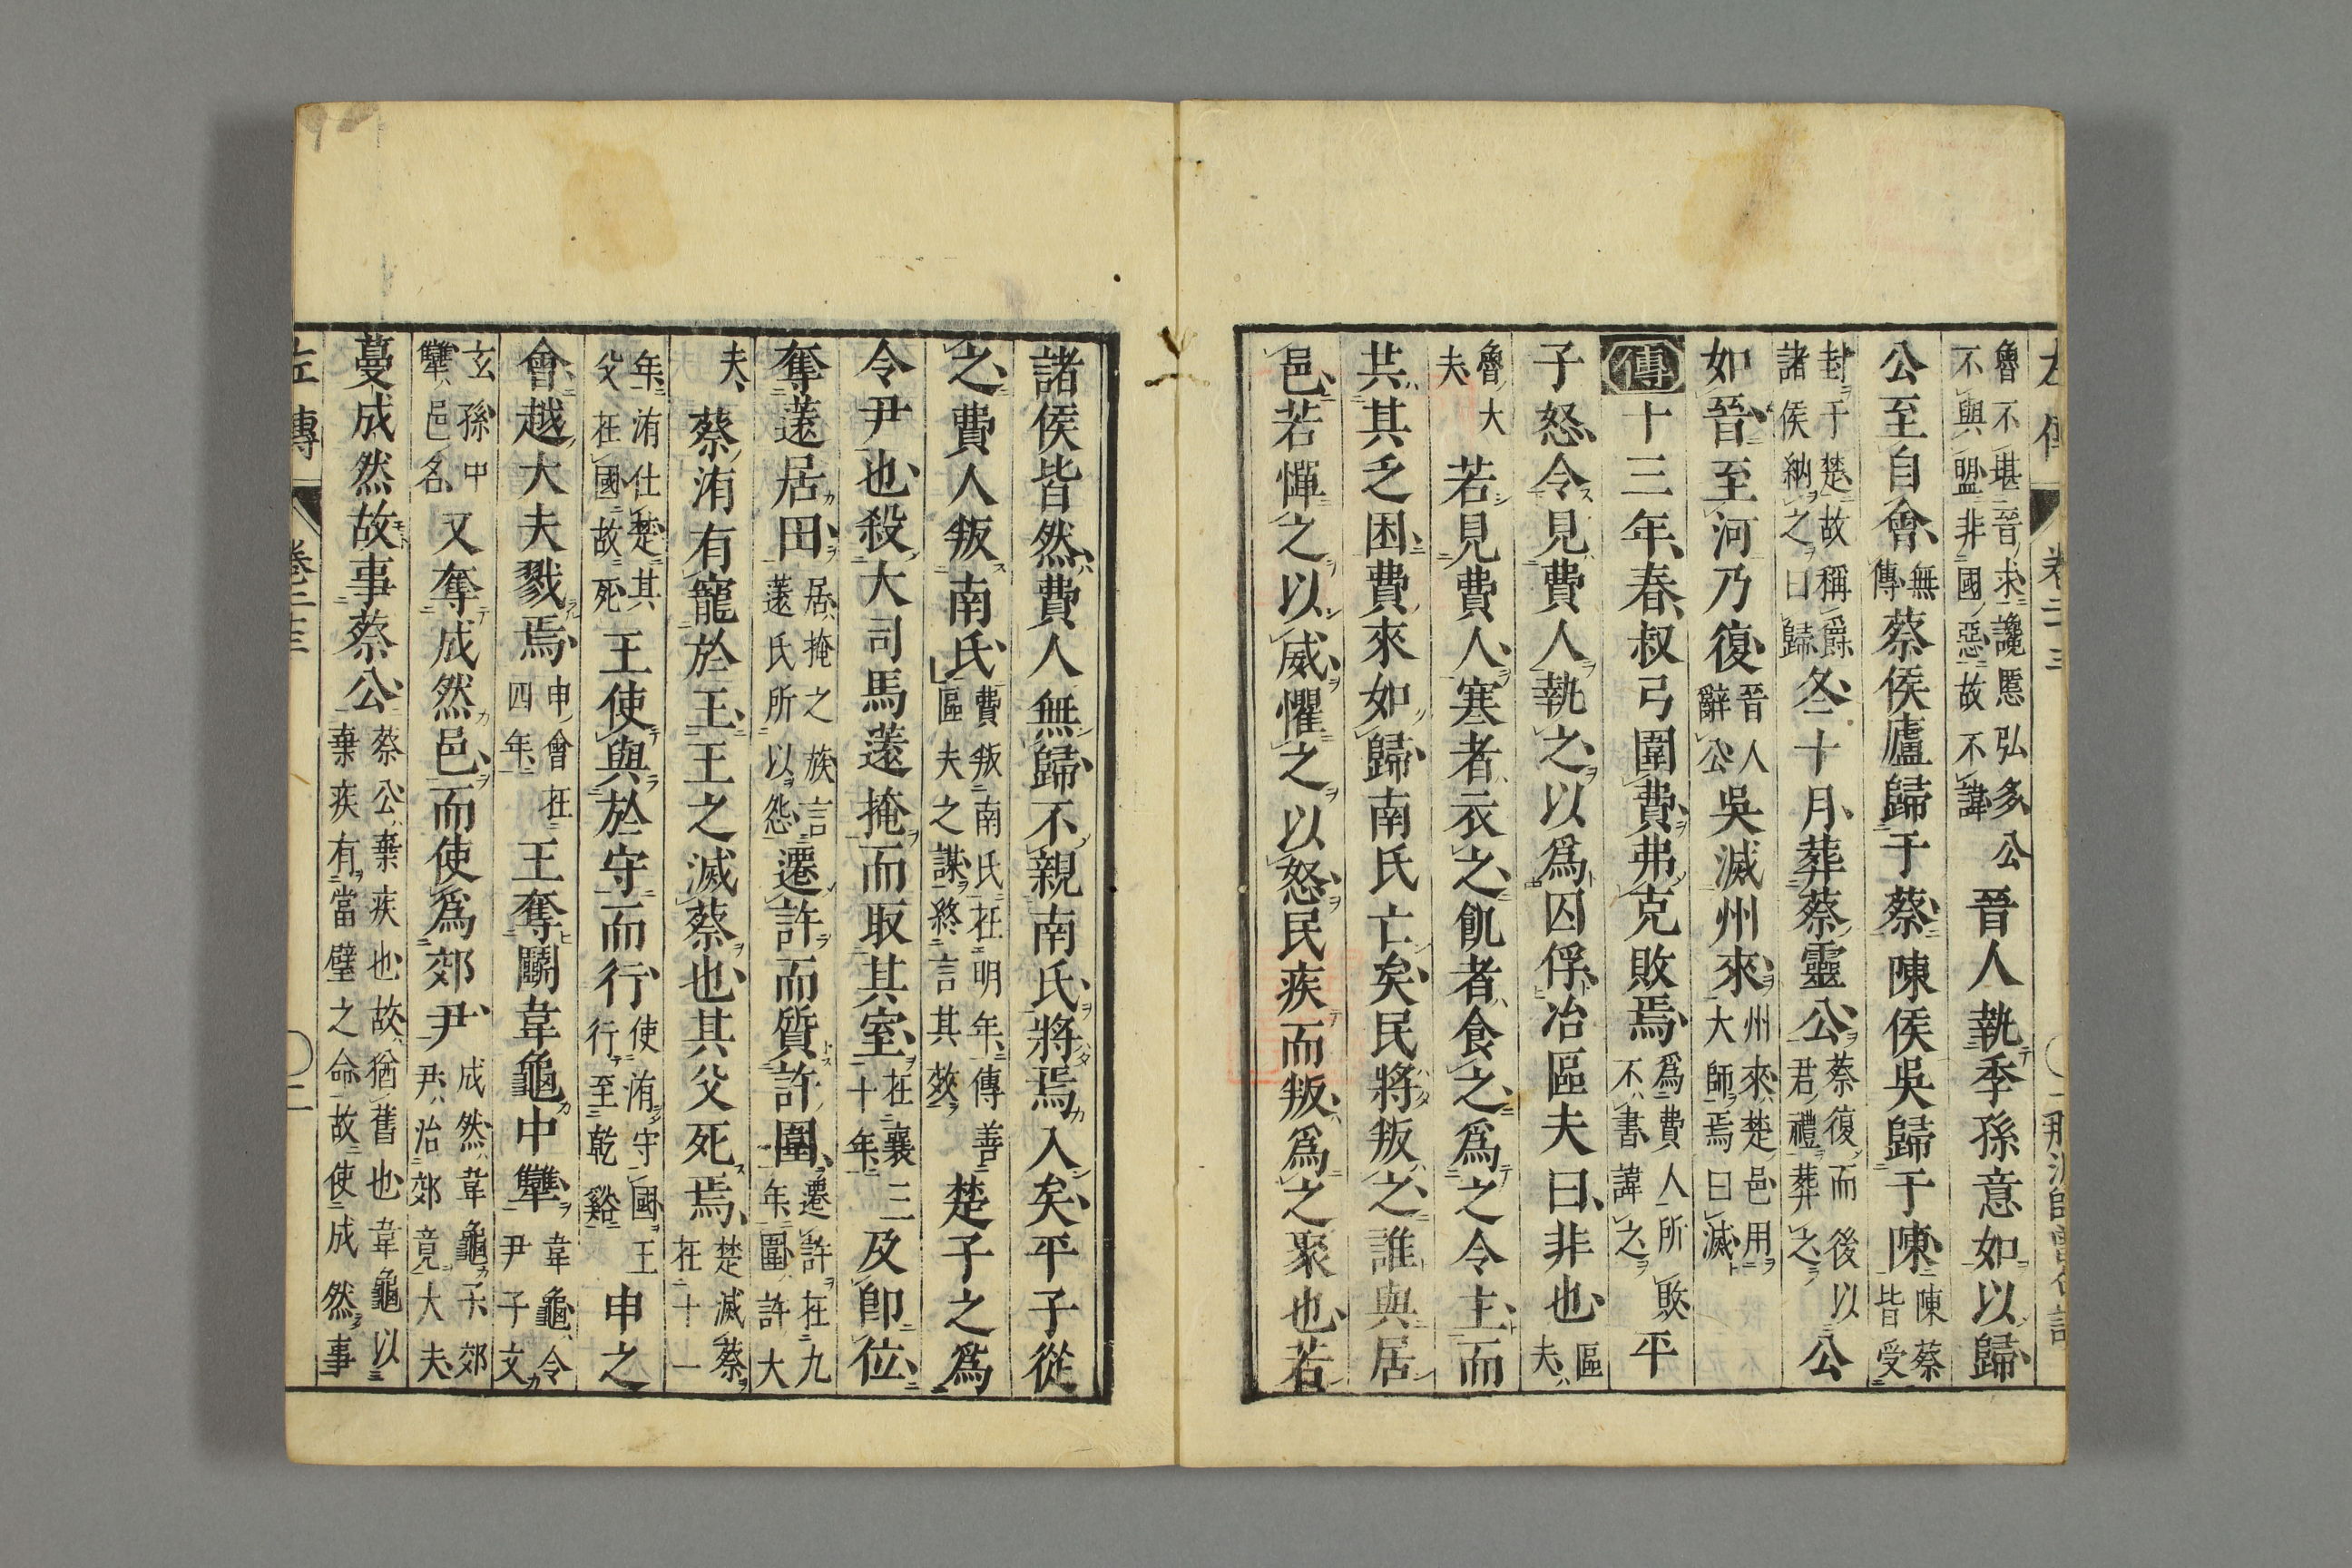 卷二十三
魯不堪晉求讒慝弘多公
不與盟非國惡故不諱
晉人執季孫意如以歸
公至自會
無
傳
蔡侯廬歸于蔡陳侯吳歸于陳
陳蔡
皆受
封于楚故稱爵
諸侯納之曰歸
冬十月葬蔡靈公
蔡復而後以
君禮葬之
公
如晉至河乃復
晉人
辭公
吳滅州來
州來楚邑用
大師焉曰滅
傳十三年春叔弓圍費弗克敗焉
爲費人所敗
不書諱之
平
子怒令見費人執之以爲囚俘冶區夫曰非也
區
夫
魯大
夫
若見費人寒者衣之飢者食之爲之令主而
共其乏困費來如歸南氏亡矣民將叛之誰與居
邑若憚之以威懼之以怒民疾而叛爲之聚也若
諸侯皆然費人無歸不親南氏將焉入矣平子從
之費人叛南氏
費叛南氏在明年傳善
區夫之謀終言其效
楚子之爲
令尹也殺大司馬薳掩而取其室
在襄三
十年
及卽位
奪薳居田
居掩之族言
薳氏所以怨
遷許而質許圍
遷許在九
年圍許大
夫
蔡洧有寵於王王之滅蔡也其父死焉
楚滅蔡
在十一
年洧仕楚其
父在國故死
王使與於守而行
使洧守國王
行至乾谿
申之
會越大夫戮焉
申會在
四年
王奪鬭韋龜中犫
韋龜令
尹子文
玄孫中
犫邑名
又奪成然邑而使爲郊尹
成然韋龜子郊
尹治郊竟大夫
蔓成然故事蔡公
蔡公棄疾也故猶舊也韋龜以
棄疾有當璧之命故使成然事
左傳
卷二十三
二